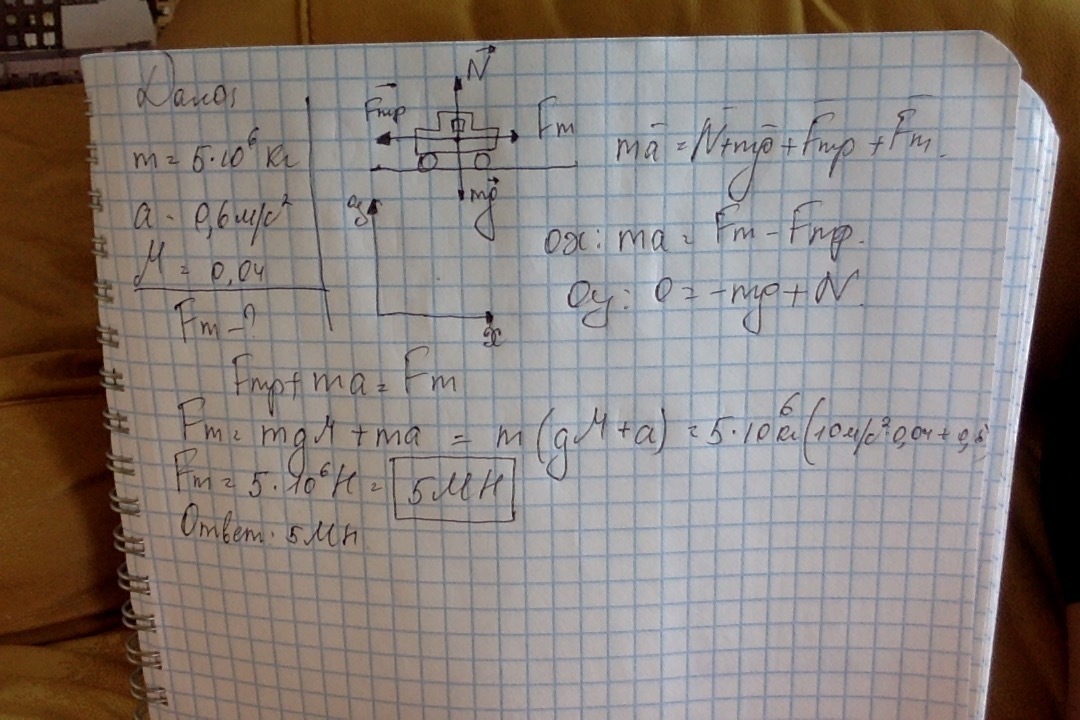 Дано:
m = 5·10⁶ кг
a = 0,6 м/с²
M = 0,04
Fт - ?
N
Fтр
Fт
mg
y
x
ma = N + mg + Fтр + Fт.
ox: ma = Fт - Fтр.
Oy: 0 = -mg + N.
Fтр + ma = Fт
Fт = mgM + ma = m (gM + a) = 5·10⁶ кг (10 м/с²·0,04 + 0,6
Fт = 5·10⁶ Н = 5 МН
Ответ: 5 Мн